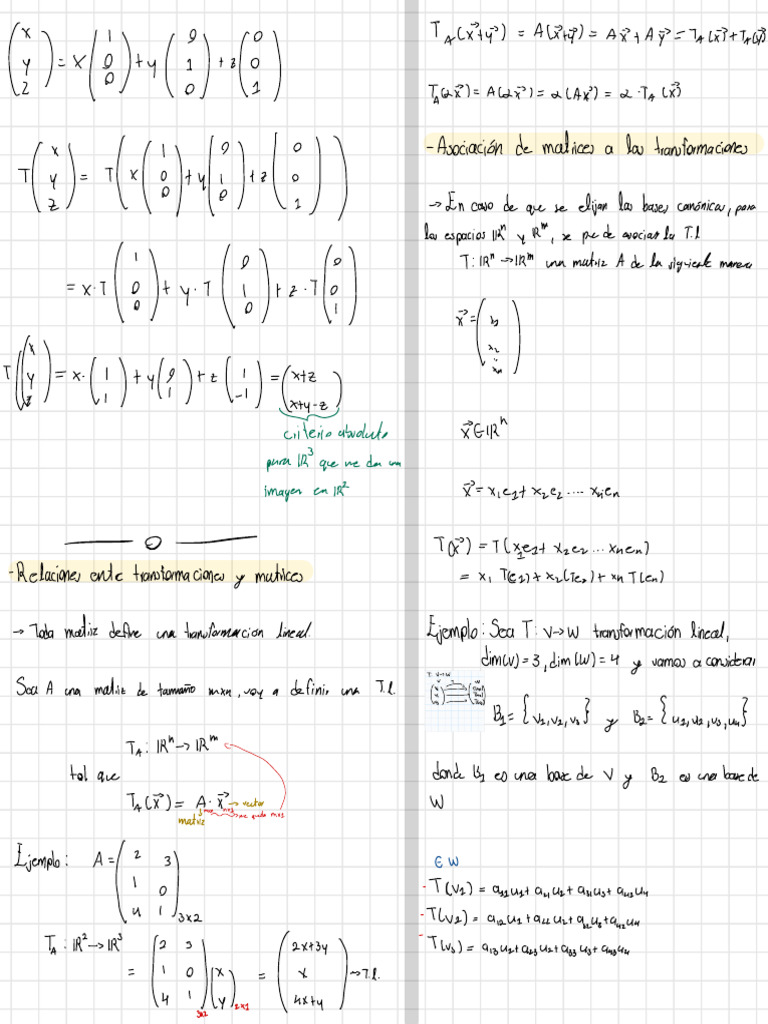 (x y z) = x (1 0 0) + y (0 1 0) + z (0 0 1)
T (x y z) = T (x (1 0 0) + y (0 1 0) + z (0 0 1))
= x · T (1 0 0) + y · T (0 1 0) + z · T (0 0 1)
T (x y z) = x · (1 1) + y (0 1) + z (1 -1) = (x+z x+y-z)
criterio absoluto
para IR³ que me da una
imagen en IR²
- Relaciones ente transformaciones y matrices
→ Toda matriz define una transformacion lineal.
Sea A una matriz de tamaño mxn, voy a definir una T.L.
T_A : IRⁿ → IRᵐ
tal que
T_A(x⃗) = A · x⃗ → vector
matriz
Ejemplo: A = (2 3 1 0 4 1) 3x2
T_A : IR² → IR³
= (2 3 1 0 4 1) 3x2 (x y) 2x1 = (2x+3y x 4x+y) → T.L.
T_A(x⃗+y⃗) = A(x⃗+y⃗) = Ax⃗ + Ay⃗ = T_A(x⃗) + T_A(y⃗)
T_A(αx⃗) = A(αx⃗) = α(Ax⃗) = α · T_A(x⃗)
- Asociación de matrices a las transformaciones
→ En caso de que se elijan las bases canónicas, para
los espacios IRⁿ y IRᵐ, se pue de asociar la T.l
T : IRⁿ → IRᵐ una matriz A de la siguiente manera
x⃗ = (x₁ x₂ : xn)
x⃗ ∈ IRⁿ
x⃗ = x₁e₁ + x₂e₂ .... xnen
T(x⃗) = T(x₁e₁ + x₂e₂ ... xnen)
= x₁ T(e₁) + x₂(Te₂) + xn T(en)
Ejemplo: Sea T : V → W transformación lineal,
dim(V) = 3, dim(W) = 4 y vamos a considerar
T: V→W
B₁ = {v₁, v₂, v₃} y B₂ = {u₁, u₂, u₃, u₄}
donde B₁ es una base de V y B₂ es una base de
W
∈ W
- T(v₁) = a₁₁u₁ + a₂₁u₂ + a₃₁u₃ + a₄₁u₄
- T(v₂) = a₁₂u₁ + a₂₂u₂ + a₃₂u₃ + a₄₂u₄
- T(v₃) = a₁₃u₁ + a₂₃u₂ + a₃₃u₃ + a₄₃u₄